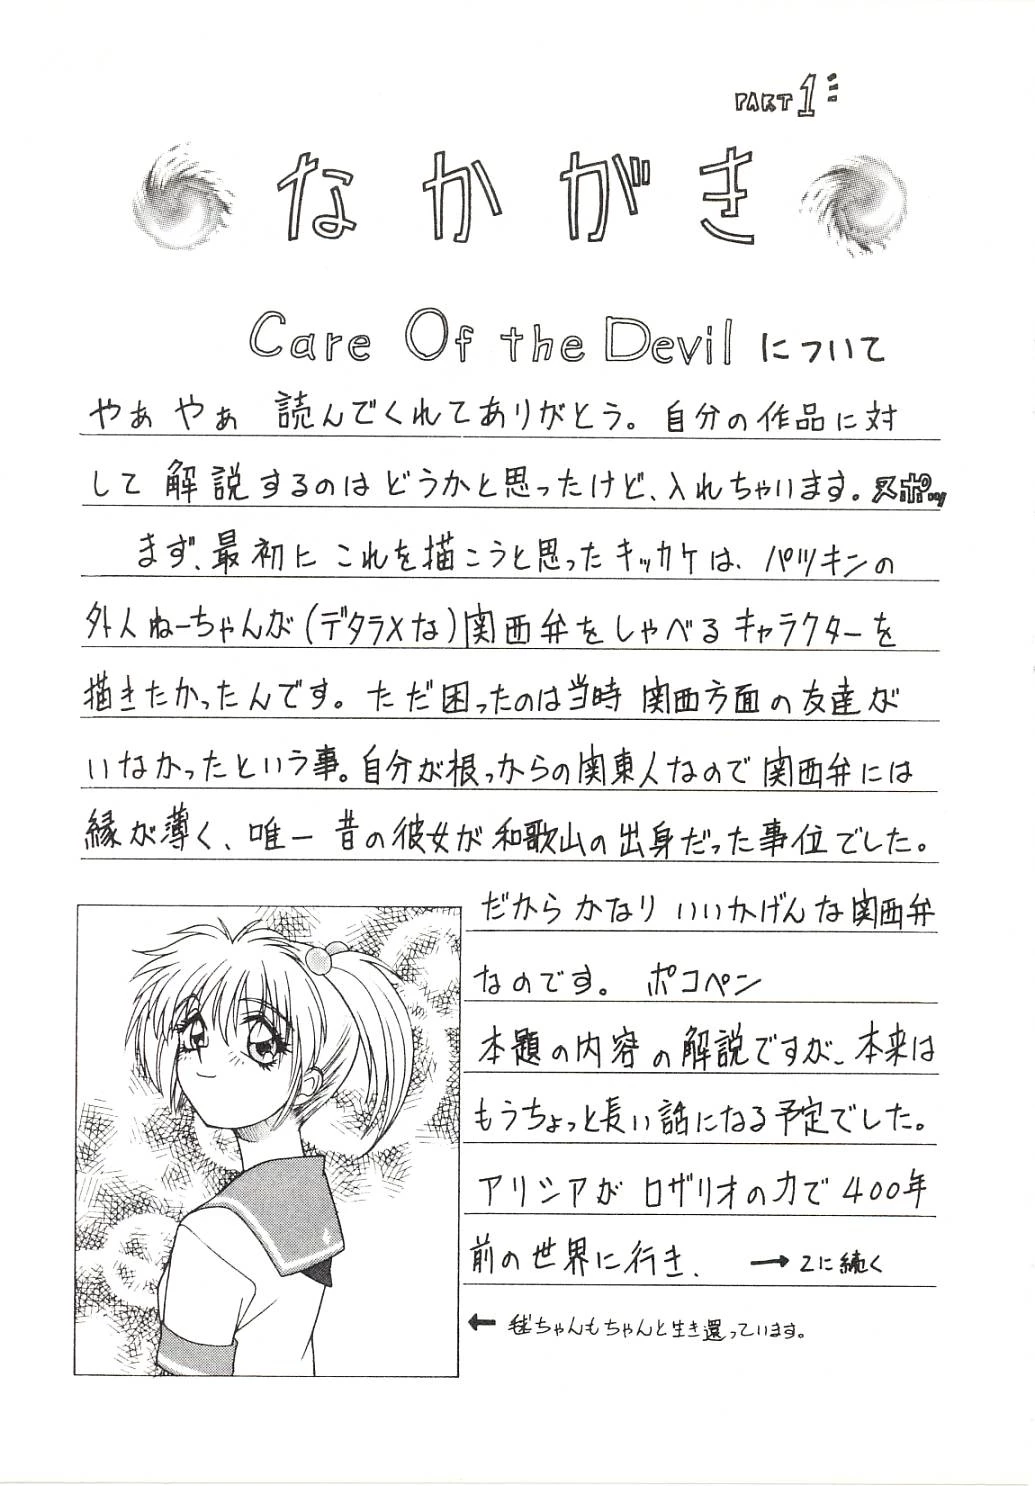 PART1:
なかがき
Care Of the Devil について
やぁ やぁ 読んでくれてありがとう。自分の作品に対
して 解説するのは どうかと思ったけど、入れちゃいます。ヌポッ
まず、最初に これを描こうと思ったキッカケは、パツキンの
外人ねーちゃんが(デタラメな)関西弁をしゃべる キャラクターを
描きたかったんです。ただ困ったのは当時 関西方面の友達が
いなかったという事。自分が根っからの関東人なので関西弁には
縁が薄く、唯一 昔の彼女が和歌山の出身だった事位でした。
だから かなり いいかげんな関西弁
なのです。 ポコペン
本題の内容の解説ですが、本来は
もうちょっと長い話になる予定でした。
アリシアが ロザリオの力で 400年
前の世界に行き、 →2に続く
← ちゃんもちゃんと生き還っています。